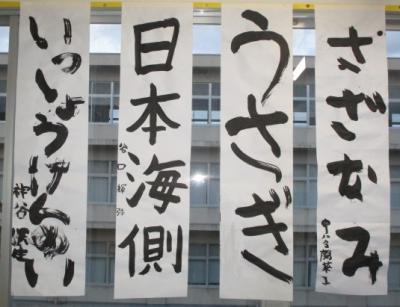 さざなみ
うさぎ
日本海側
いっしょうけんめい
神谷